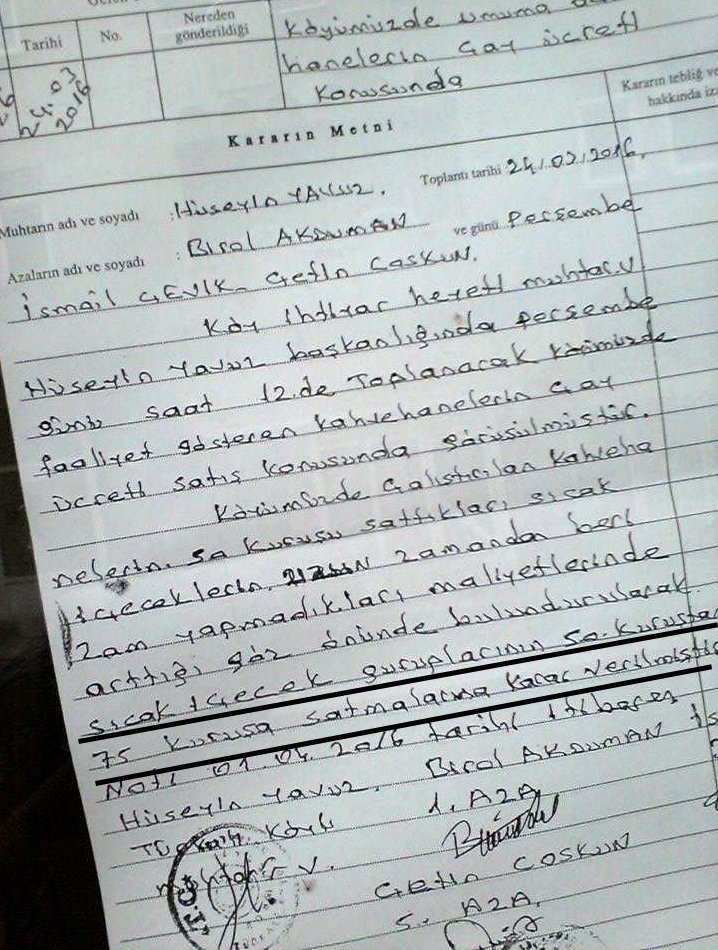 Tarihi
No.
Nereden gönderildiği
Köyümüzde umuma
hanelerin Çay ücreti
Konusunda
24.03
2016
Kararın Metni
Kararın tebliğ ve
hakkında
Muhtarın adı ve soyadı : Hüseyin YAVUZ.
Toplantı tarihi 24/03/2016.
Azaların adı ve soyadı : Birol AKDUMAN
ve günü Perşembe
İsmail GEYİK Çetin COŞKUN.
Köy İhtiyar heyeti muhtar V
Hüseyin Yavuz başkanlığında perşembe
günü saat 12.de Toplanacak Köyümüzde
faaliyet gösteren Kahvehanelerin Çay
ücreti satış konusunda görüşülmüştür.
Köyümüzde Çalıştırılan Kahveha
nelerin. 50 Kuruşu sattıkları sıcak
içeceklerin. UZUN zamandan beri
zam yapmadıkları maliyetlerinde
arttığı göz önünde bulundurularak
sıcak içecek guruplarının 50. kuruşta
75 kuruşa satmalarına Karar verilmişti
Not: 01.04.2016 tarihi itibaren
Hüseyin Yavuz. Birol AKDUMAN
Köyü 1. AZA
V.
Çetin COŞKUN
AZA.
T.C.